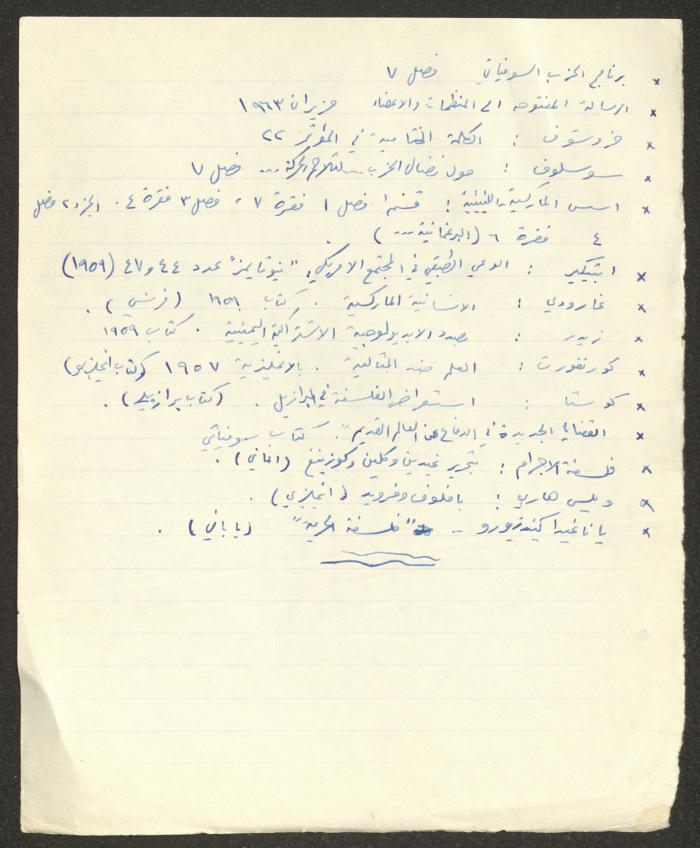 × برنامج الحزب السوفياتي فصل ٧
× الرسالة المفتوحه الى المنظمات والاعضاء حزيران ١٩٦٣
× خروستوف : الكلمة الختامية في المؤتمر ٢٢
× سوسلوف : حول نضال الحزب ... لتلاحم الحركة ... فصل ٧
× اسس الماركسية - اللينينية : قسم ١ فصل ١ فقرة ٧ ، فصل ٣ فقرة ٤ . الجزء ٢ فصل
٤ فقرة ٦ (البرغماتية ...) .
× ابتيكير : الوعي الطبقي في المجتمع الامريكي. "نيوتايمز" عدد ٤٤ و ٤٧ (١٩٥٩)
× غارودي : الانسانية الماركسية . كتاب ١٩٥٨ (فرنسي) .
× زيدر : بصدد الايديولوجية الاشتراكية اليمينية . كتاب ١٩٥٩
× كورنفورث : العلم ضد المثالية . بالانجليزية ١٩٥٧ (كتاب انجليزي)
× كوستا : استعراض الفلسفة في البرازيل . (كتاب برازيلي) .
× القضايا الجديدة في الدفاع عن العالم القديم" . كتاب سوفياتي
× فلسفة الاجرام : بتحرير غيدين وكلين وكوزينغ (الماني) .
× ويلس هاري : بافلوف وفرويد (انجليزي) .
× ياناغيدا كيندزورو - "فلسفة الحرية" (ياباني) .